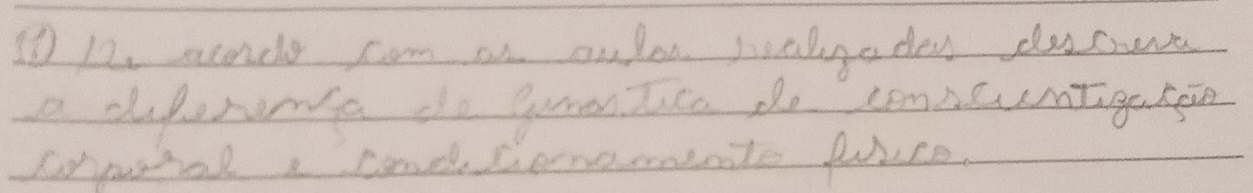 11) De acordo com as aulas realizadas descreva
a diferença de ginastica de conscientização
corporal e condicionamento fisico.